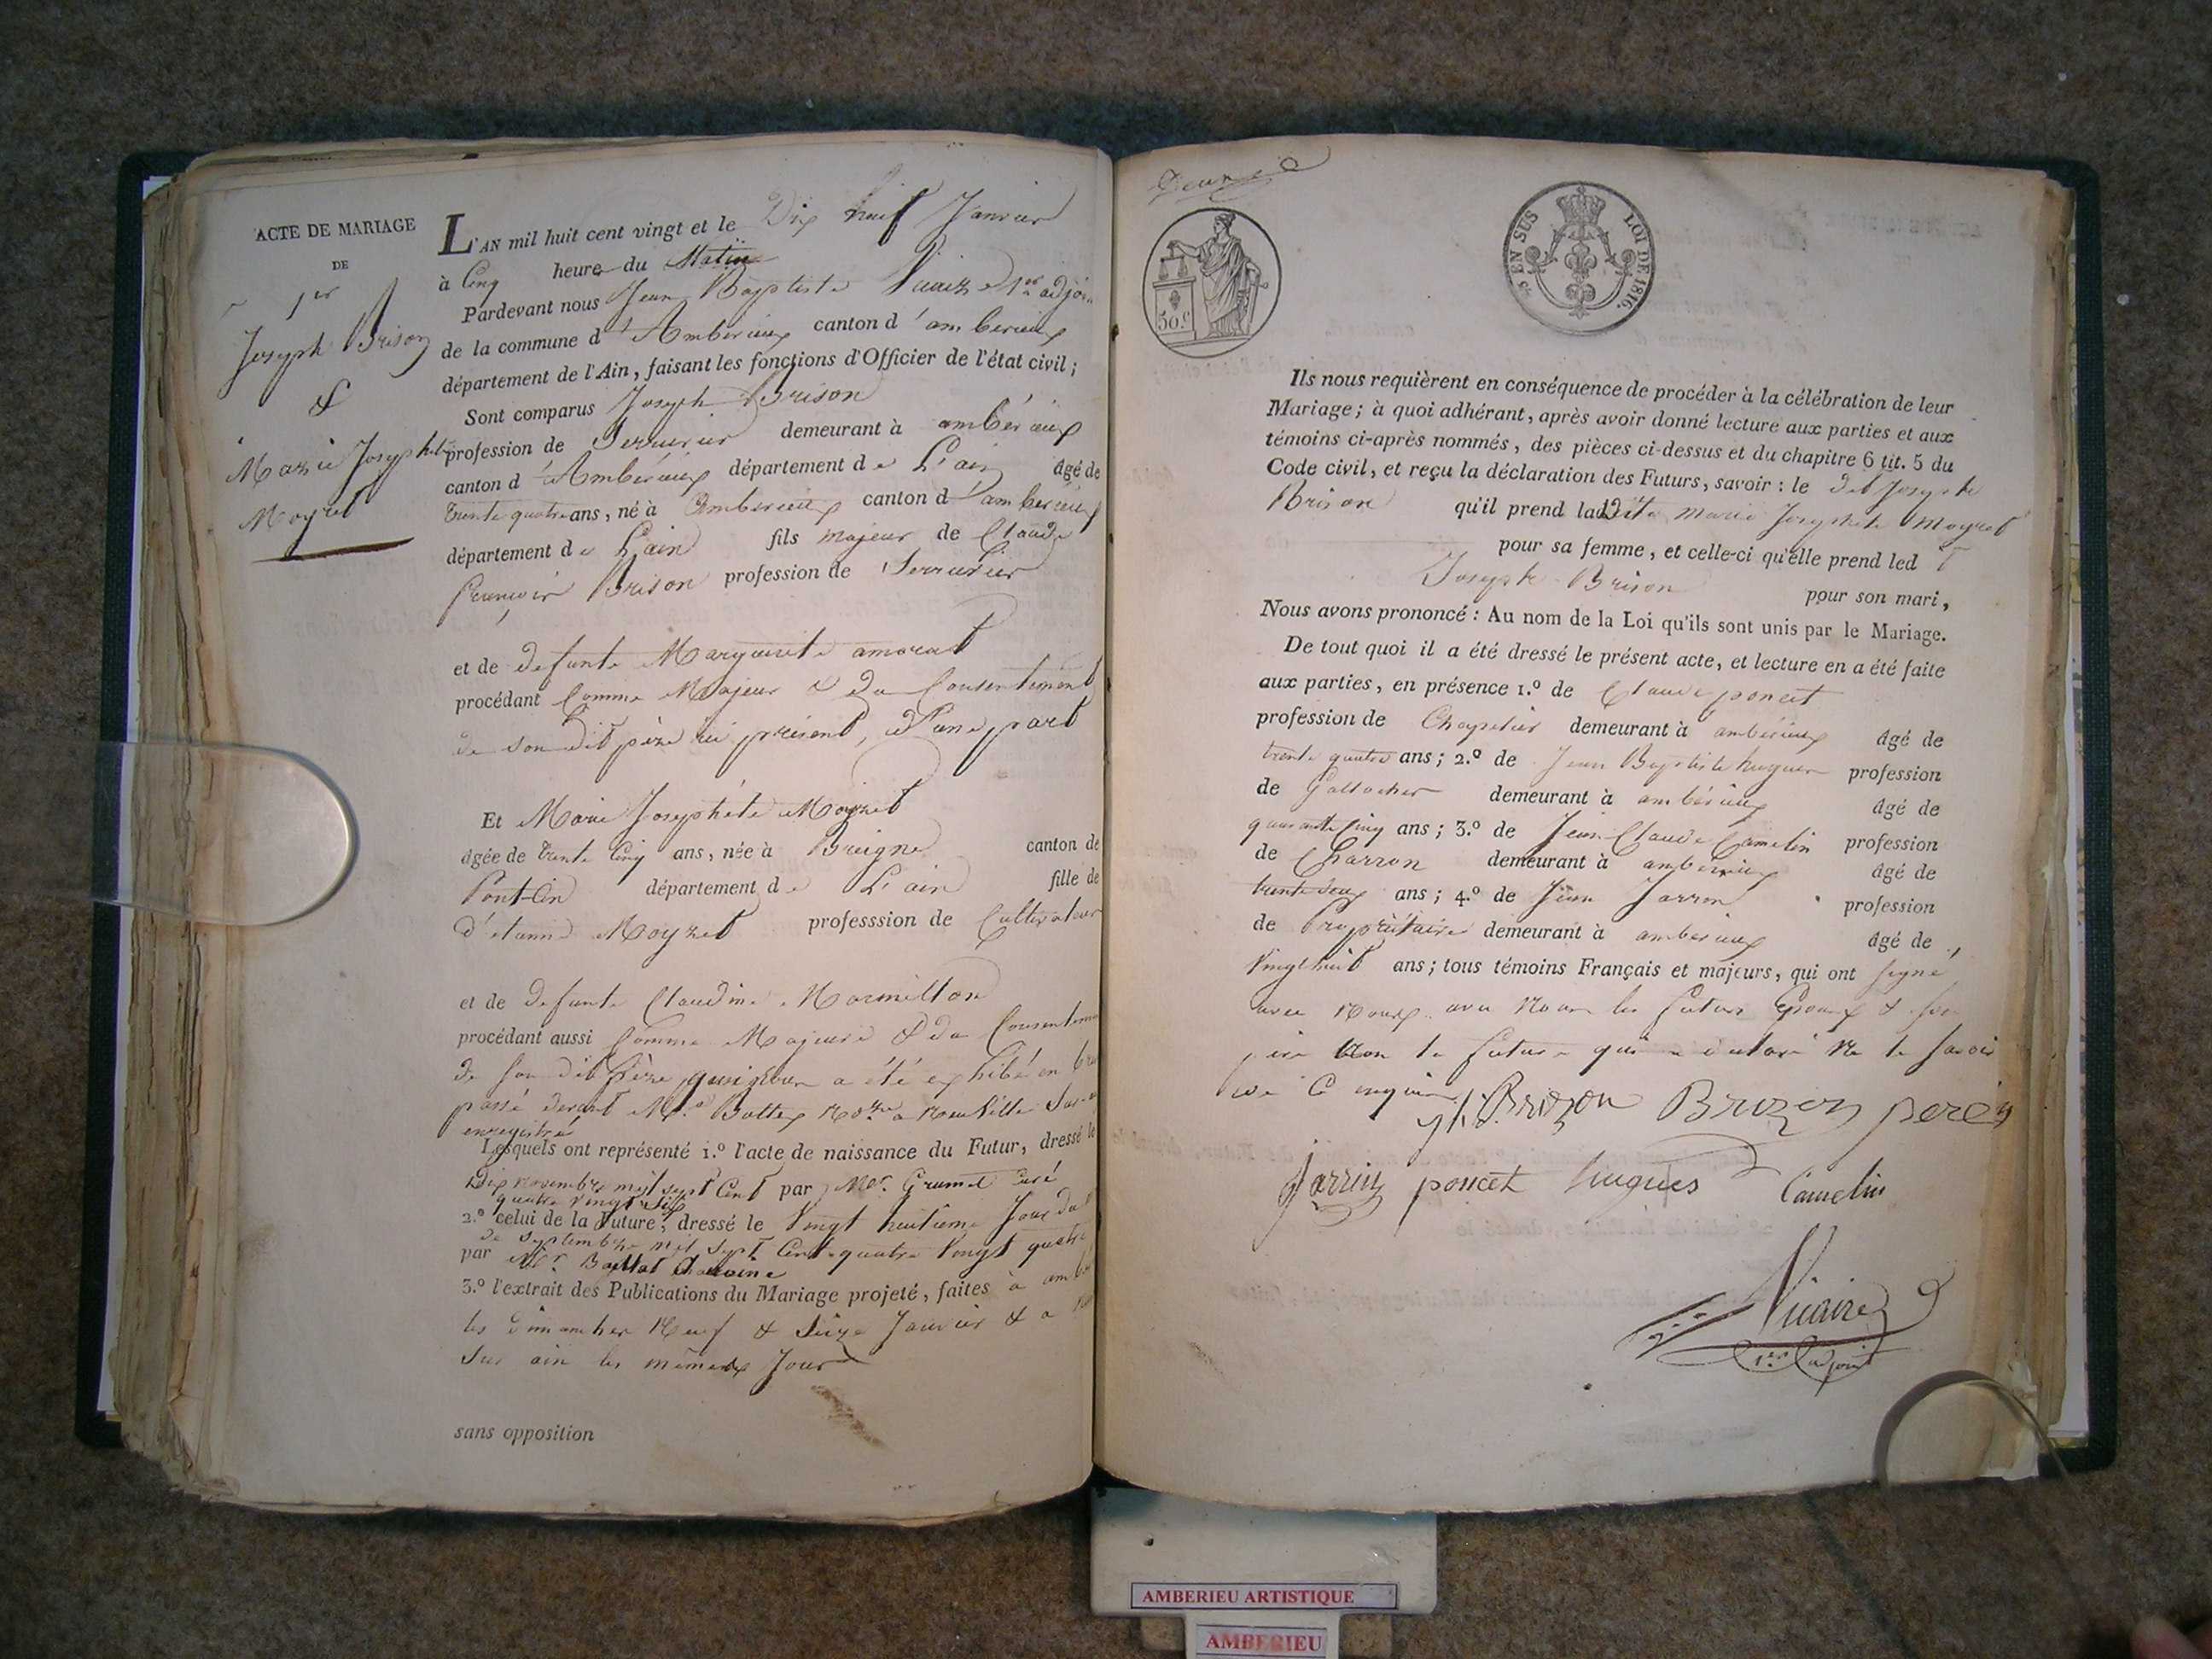 ACTE DE MARIAGE
DE
1er
Joseph Brison
&
Marie Josephete
Moyret
L'AN mil huit cent vingt et le Dix huit Janvier
à Cinq heure du Matin
Pardevant nous Jean Baptiste Vicaire 1er adjoint
de la commune d'Amberieux canton d'amberieux
département de l'Ain, faisant les fonctions d'Officier de l'état civil;
Sont comparus Joseph Brison
profession de Serrurier demeurant à ambérieux
canton d'Ambérieux département de L'ain âgé de
trente quatre ans, né à Amberieux canton d'amberieux
département de L'ain fils majeur de Claude
François Brison profession de Serrurier
et de defunte Marguerite amorat
procédant Comme Majeur & du Consentement
de son dit père ici présent, d'une part
Et Marie Josephete Moyret
âgée de trente Cinq ans, née à canton de
Pont-d'ain département de L'ain fille de
d'etienne Moyret professsion de Cultivateur
et de defunte Claudine Marmillon
procédant aussi Comme Majeure & du Consentement
de son dit père a été exhibé en
passé devant Me a Neuville Sur
enregistré
Lesquels ont représenté 1.º l'acte de naissance du Futur, dressé le
Dix novembre mil sept Cent par Mr. Grumel Curé
quatre Vingt
2.º celui de la Future, dressé le Vingt huitième Jour du
de Septembre mil Sept Cent quatre Vingt quatre
par Mr.
3.º l'extrait des Publications du Mariage projeté, faites à
les dimanches Neuf & Seize Janvier & a
Sur ain les mêmes Jour
sans opposition
50.c
EN SUS LOI DE 1816.
Ils nous requièrent en conséquence de procéder à la célébration de leur
Mariage; à quoi adhérant, après avoir donné lecture aux parties et aux
témoins ci-après nommés, des pièces ci-dessus et du chapitre 6 tit. 5 du
Code civil, et reçu la déclaration des Futurs, savoir: le dit Joseph
Brison qu'il prend ladite marie Josephete Moyret
pour sa femme, et celle-ci qu'elle prend led T
Joseph Brison pour son mari,
Nous avons prononcé: Au nom de la Loi qu'ils sont unis par le Mariage.
De tout quoi il a été dressé le présent acte, et lecture en a été faite
aux parties, en présence 1.º de Claude poncet
profession de Chapelier demeurant à ambérieux âgé de
trente quatre ans; 2.º de Jean Baptiste hugues profession
de demeurant à ambérieux âgé de
quarante Cinq ans; 3.º de Jean Claude Camelin profession
de Charron demeurant à amberieux âgé de
trente deux ans; 4.º de Jean Jarrin profession
de Propriétaire demeurant à amberieux âgé de
Vingt huit ans; tous témoins Français et majeurs, qui ont signé
avec Nous le futur Epoux & son
père Non la future qui a déclaré Ne le Savoir
de Ce enquise
Jh. Brizon Brizon pere
Jarrin poncet hugues Camelin
Vicaire
1er adjoint
AMBERIEU ARTISTIQUE
AMBERIEU